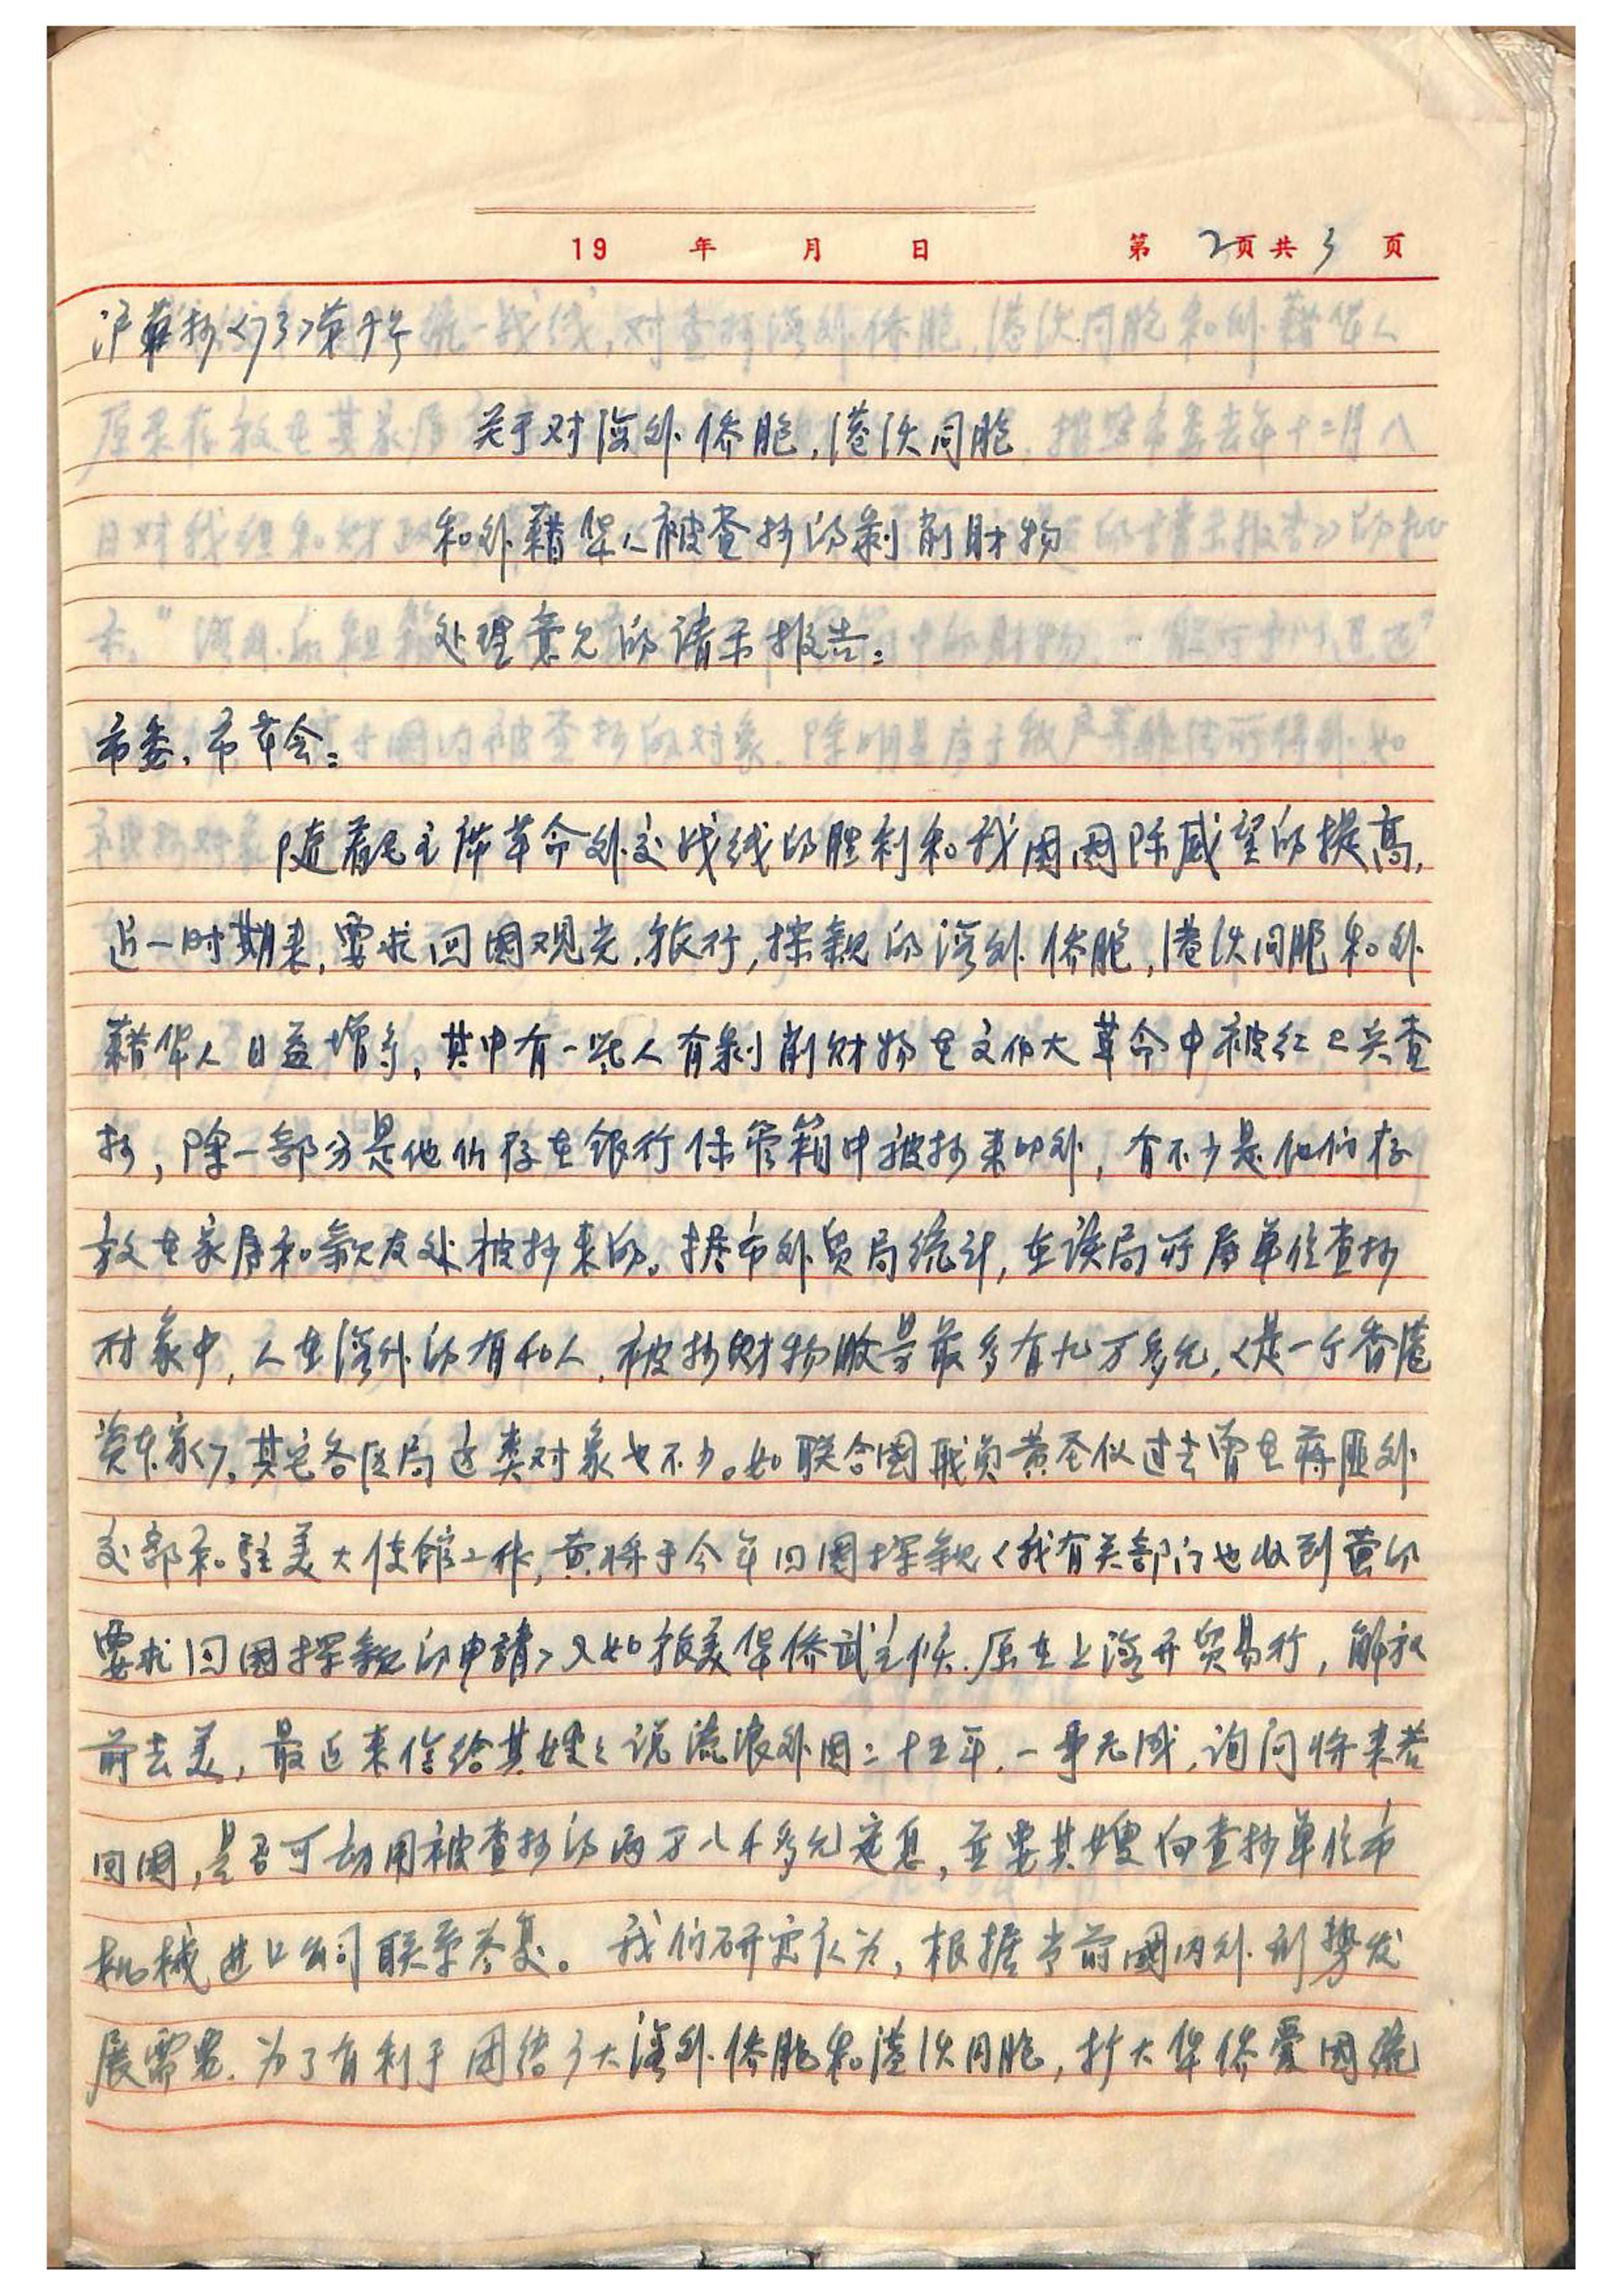 19 年 月 日 第2页共3页
沪革抄〈73〉第 号
关于对海外侨胞,港澳同胞
和外籍华人被查抄的剥削财物
处理意见的请示报告:
市委、市革会:
随着毛主席革命外交战线的胜利和我国国际威望的提高,
近一时期来,要求回国观光、旅行,探亲的海外侨胞,港澳同胞和外
籍华人日益增多,其中有一些人有剥削财物在文化大革命中被红卫兵查
抄,除一部分是他们存在银行保管箱中被抄来的外,有不少是他们存
放在家属和亲友处被抄来的。据市外贸局统计,在该局所属单位查抄
对象中,人在海外的有40人,被抄财物数量最多有九万多元,〈是一个香港
资本家〉,其它各区局这类对象也不少。如联合国职员黄 仪过去曾在蒋匪外
交部和驻美大使馆工作,黄将于今年回国探亲〈我有关部门也收到黄的
要求回国探亲的申請〉又如旅美华侨武 候.原在上海开贸易行,解放
前去美,最近来信给其嫂:说流浪外国二十五年,一事无成,询问将来若
回国,是否可动用被查抄的两万八千多元定息,並要其嫂向查抄单位市
机械进口公司联系答复。我们研究认为,根据当前國内外形势发
展需要.为了有利于团结广大海外侨胞和港澳同胞,扩大华侨爱国统